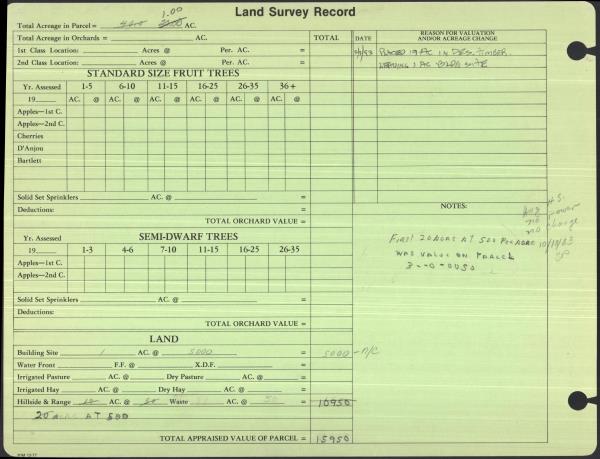 1.00
Land Survey Record
Total Acreage in Parcel = AC.
Total Acreage in Orchards = AC. TOTAL DATE REASON FOR VALUATION AND/OR ACREAGE CHANGE
1st Class Location: Acres @ Per. AC. = PLACED 19 AC IN DES. TIMBER
2nd Class Location: Acres @ Per. AC. = LEAVING 1 AC BLDG SITE
STANDARD SIZE FRUIT TREES
Yr. Assessed 1-5 6-10 11-15 16-25 26-35 36+
19 AC. @ AC. @ AC. @ AC. @ AC. @ AC. @
Apples—1st C.
Apples—2nd C.
Cherries
D'Anjou
Bartlett
Solid Set Sprinklers AC. @ =
Deductions:
TOTAL ORCHARD VALUE =
NOTES:
no change
FIRST 20 ACRES AT 500 PER ACRE 10/17/83
WAS VALUE ON PARCEL
SEMI-DWARF TREES
Yr. Assessed
19 1-3 4-6 7-10 11-15 16-25 26-35
Apples—1st C. AC. @ AC. @ AC. @ AC. @ AC. @ AC. @
Apples—2nd C.
Solid Set Sprinklers AC. @ =
Deductions:
TOTAL ORCHARD VALUE =
LAND
Building Site 1 AC. @ 5000 = 5000 - N/C
Water Front F.F. @ X.D.F. =
Irrigated Pasture AC. @ Dry Pasture AC. @ =
Irrigated Hay AC. @ Dry Hay AC. @ =
Hillside & Range AC. @ 50 Waste AC. @ 50 = 10950
20 ACRES AT 500
TOTAL APPRAISED VALUE OF PARCEL = 15950